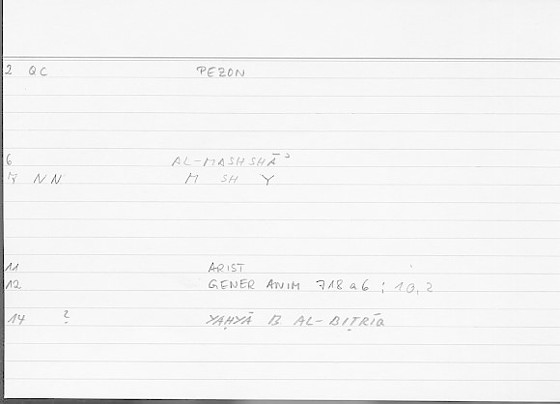 2 QC PEZON
6 AL-MASHSHĀʾ
7 NN M SH Y
11 ARIST
12 GENER ANIM 718 a 6 ; 10,2
14 ? YAḤYĀ B AL-BIṬRĪQ